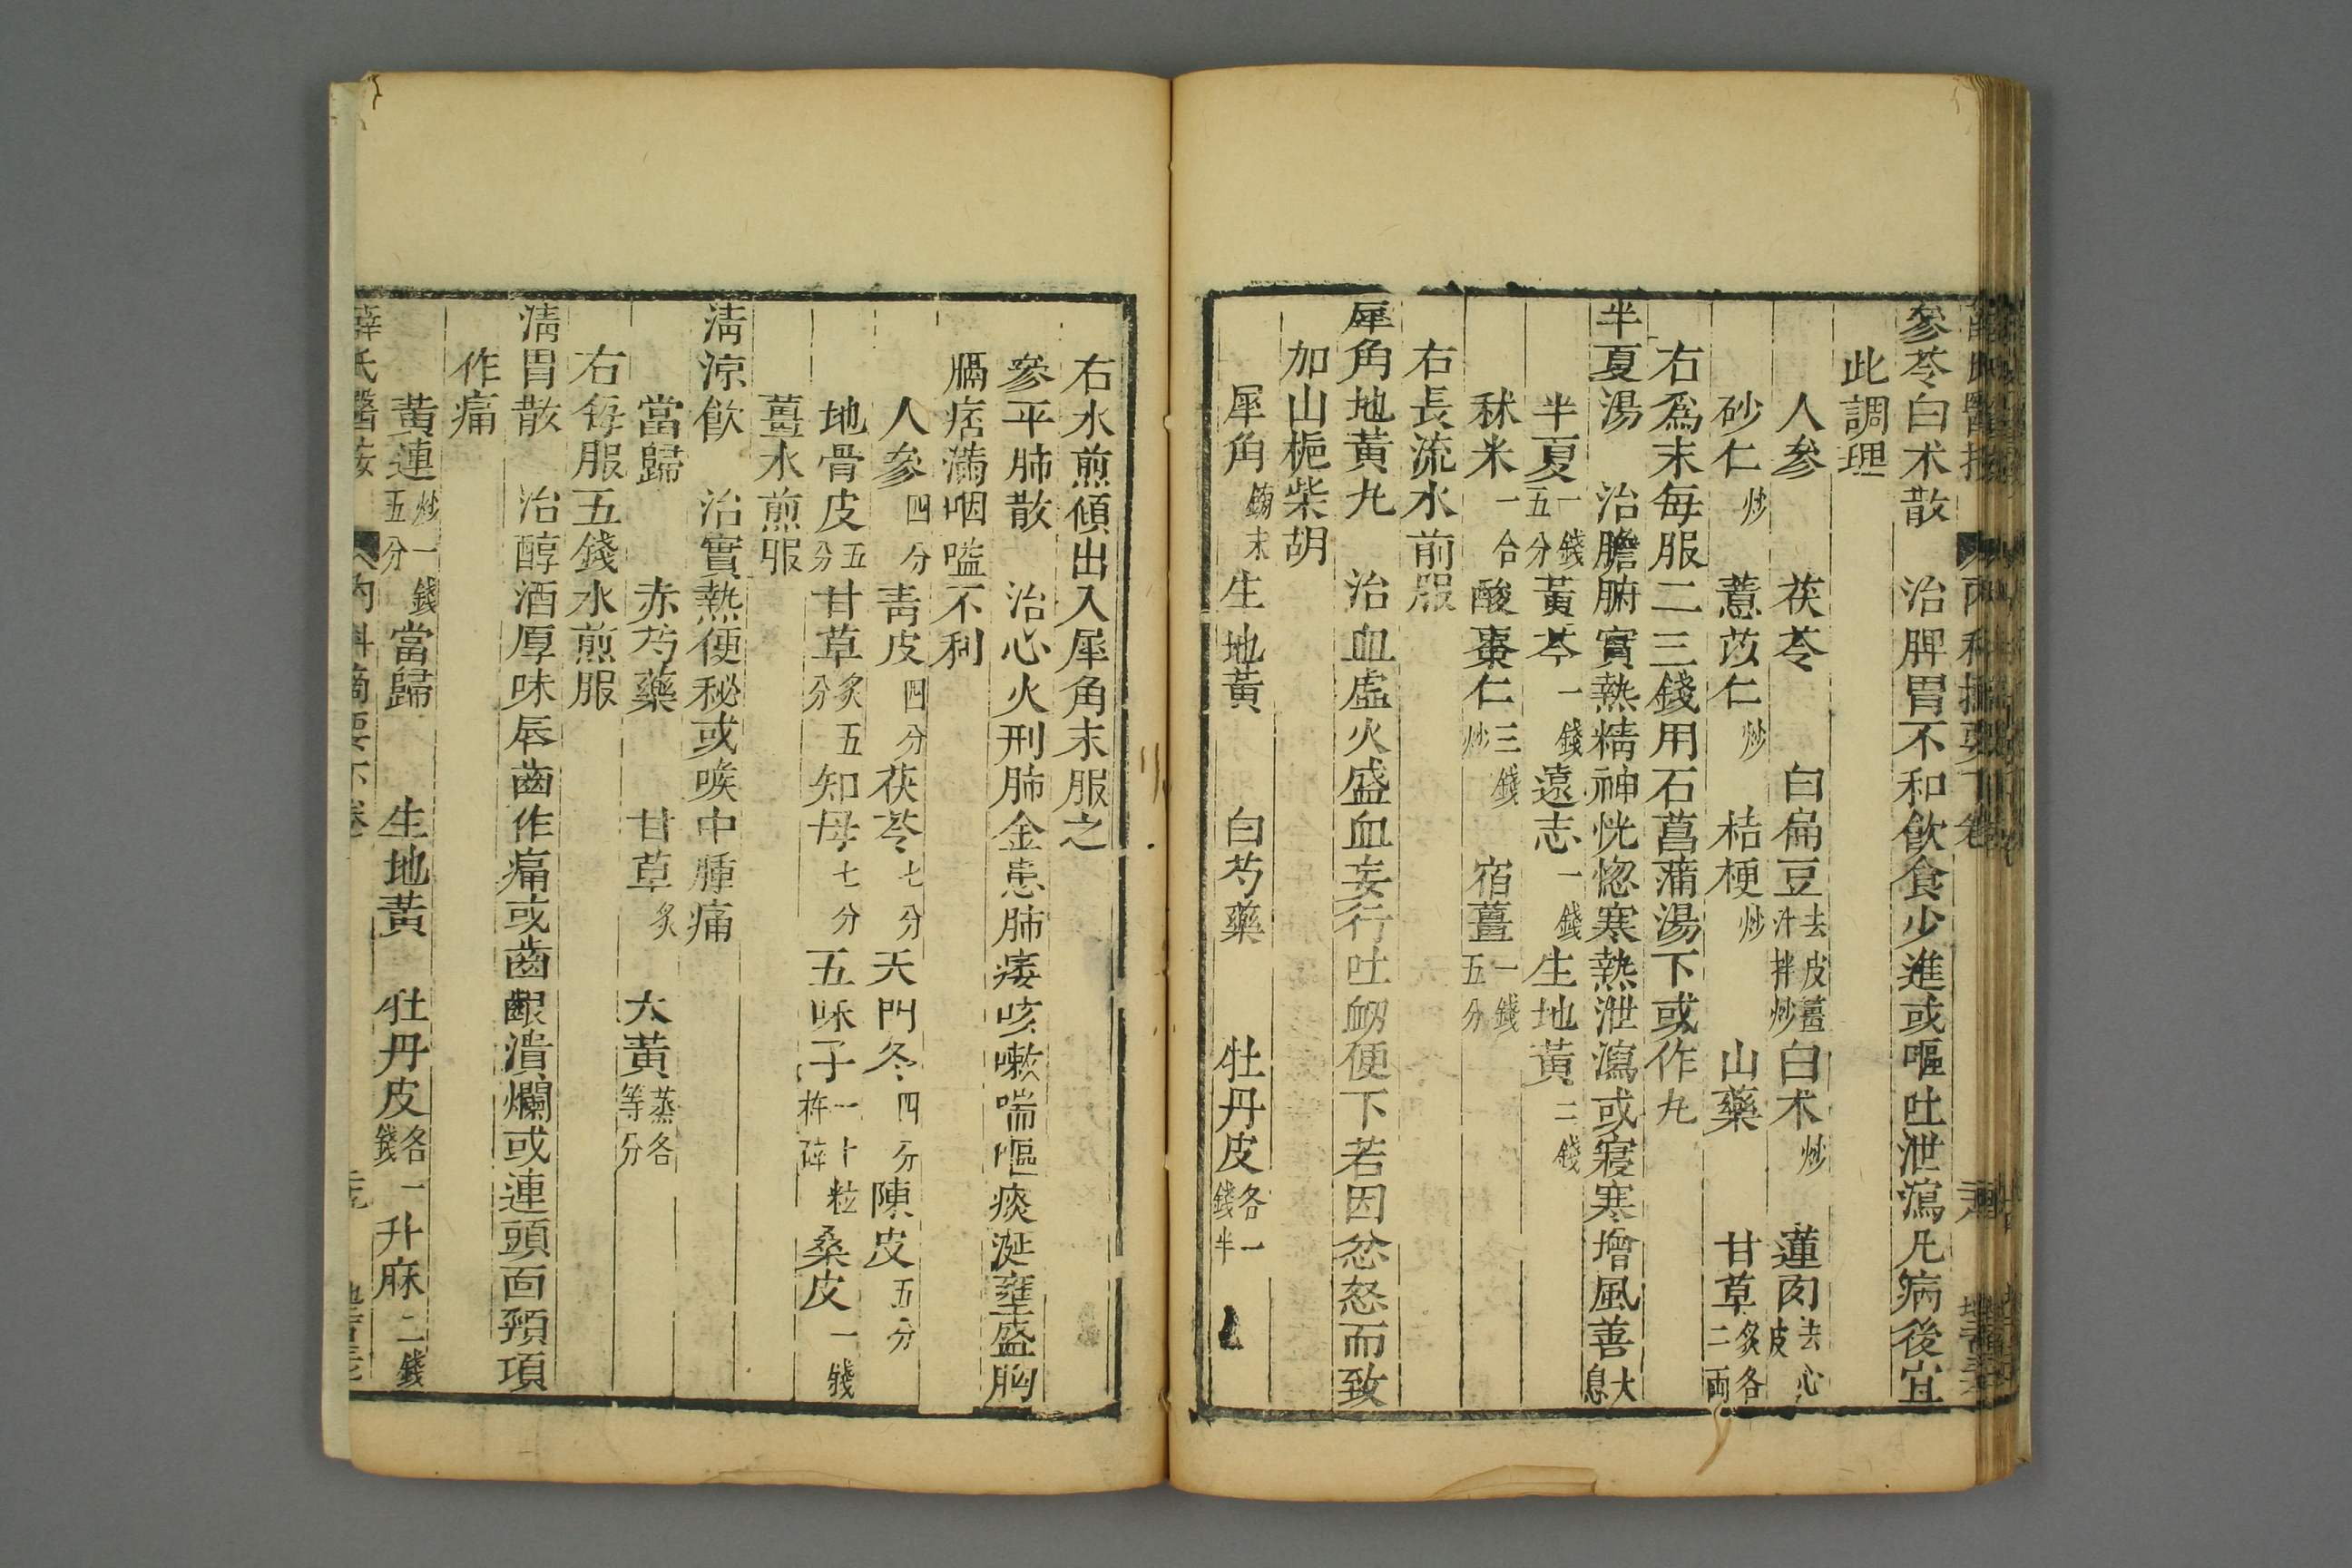 參苓白术散　治脾胃不和飲食少進或嘔吐泄瀉凡病後宜
此調理
人參　茯苓　白扁豆去皮薑汁拌炒白术炒　蓮肉去心皮
砂仁炒　薏苡仁炒　桔梗炒　山藥　甘草炙各二兩
右爲末每服二三錢用石菖蒲湯下或作丸
半夏湯　治膽腑實熱精神恍惚寒熱泄瀉或寢寒增風善大息
半夏一錢五分黃芩一錢遠志一錢生地黃二錢
秫米一合酸棗仁三錢炒　宿薑一錢五分
右長流水煎服
犀角地黃丸　治血虛火盛血妄行吐衂便下若因忿怒而致
加山梔柴胡
犀角鎊末生地黃　白芍藥　牡丹皮各一錢半
右水煎傾出入犀角末服之
參平肺散　治心火刑肺金患肺痿咳嗽喘嘔痰涎壅盛胸
膈痞滿咽嗌不利
人參四分靑皮四分茯苓七分天門冬四分陳皮五分
地骨皮五分甘草炙五分知母七分五味子一十粒杵碎桑皮一錢
薑水煎服
淸凉飮　治實熱便秘或喉中腫痛
當歸　赤芍藥　甘草炙　大黃蒸各等分
右每服五錢水煎服
淸胃散　治醇酒厚味唇齒作痛或齒齦潰爛或連頭面頸項
作痛
黃連炒一錢五分當歸　生地黃　牡丹皮各一錢升麻二錢
薛氏醫按　內科摘要下卷